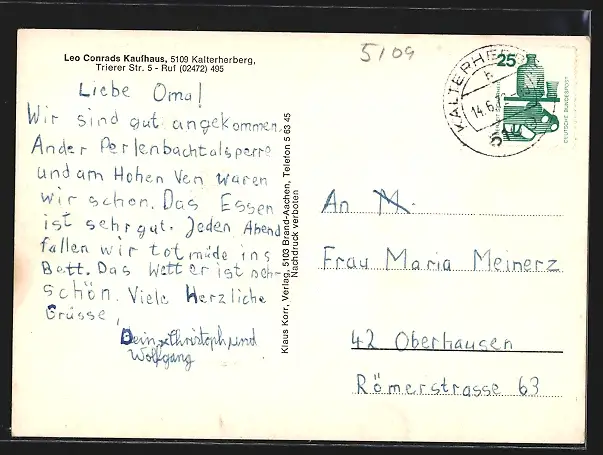 5109
Leo Conrads Kaufhaus, 5109 Kalterherberg,
Trierer Str. 5 - Ruf (02472) 495
Liebe Oma!
Wir sind gut angekommen.
An der Perlenbachtalsperre
und am Hohen Ven waren
wir schon. Das Essen
ist sehr gut. Jeden Abend
fallen wir totmüde ins
Bett. Das Wetter ist sehr
schön. Viele Herzliche
Grüsse,
Deine Christoph und
Wolfgang
Klaus Korr, Verlag, 5103 Brand-Aachen, Telefon 5 63 45
Nachdruck verboten
25
DEUTSCHE BUNDESPOST
KALTERHERBERG
14.6.7
An M.
Frau Maria Meinerz
42 Oberhausen
Römerstrasse 63